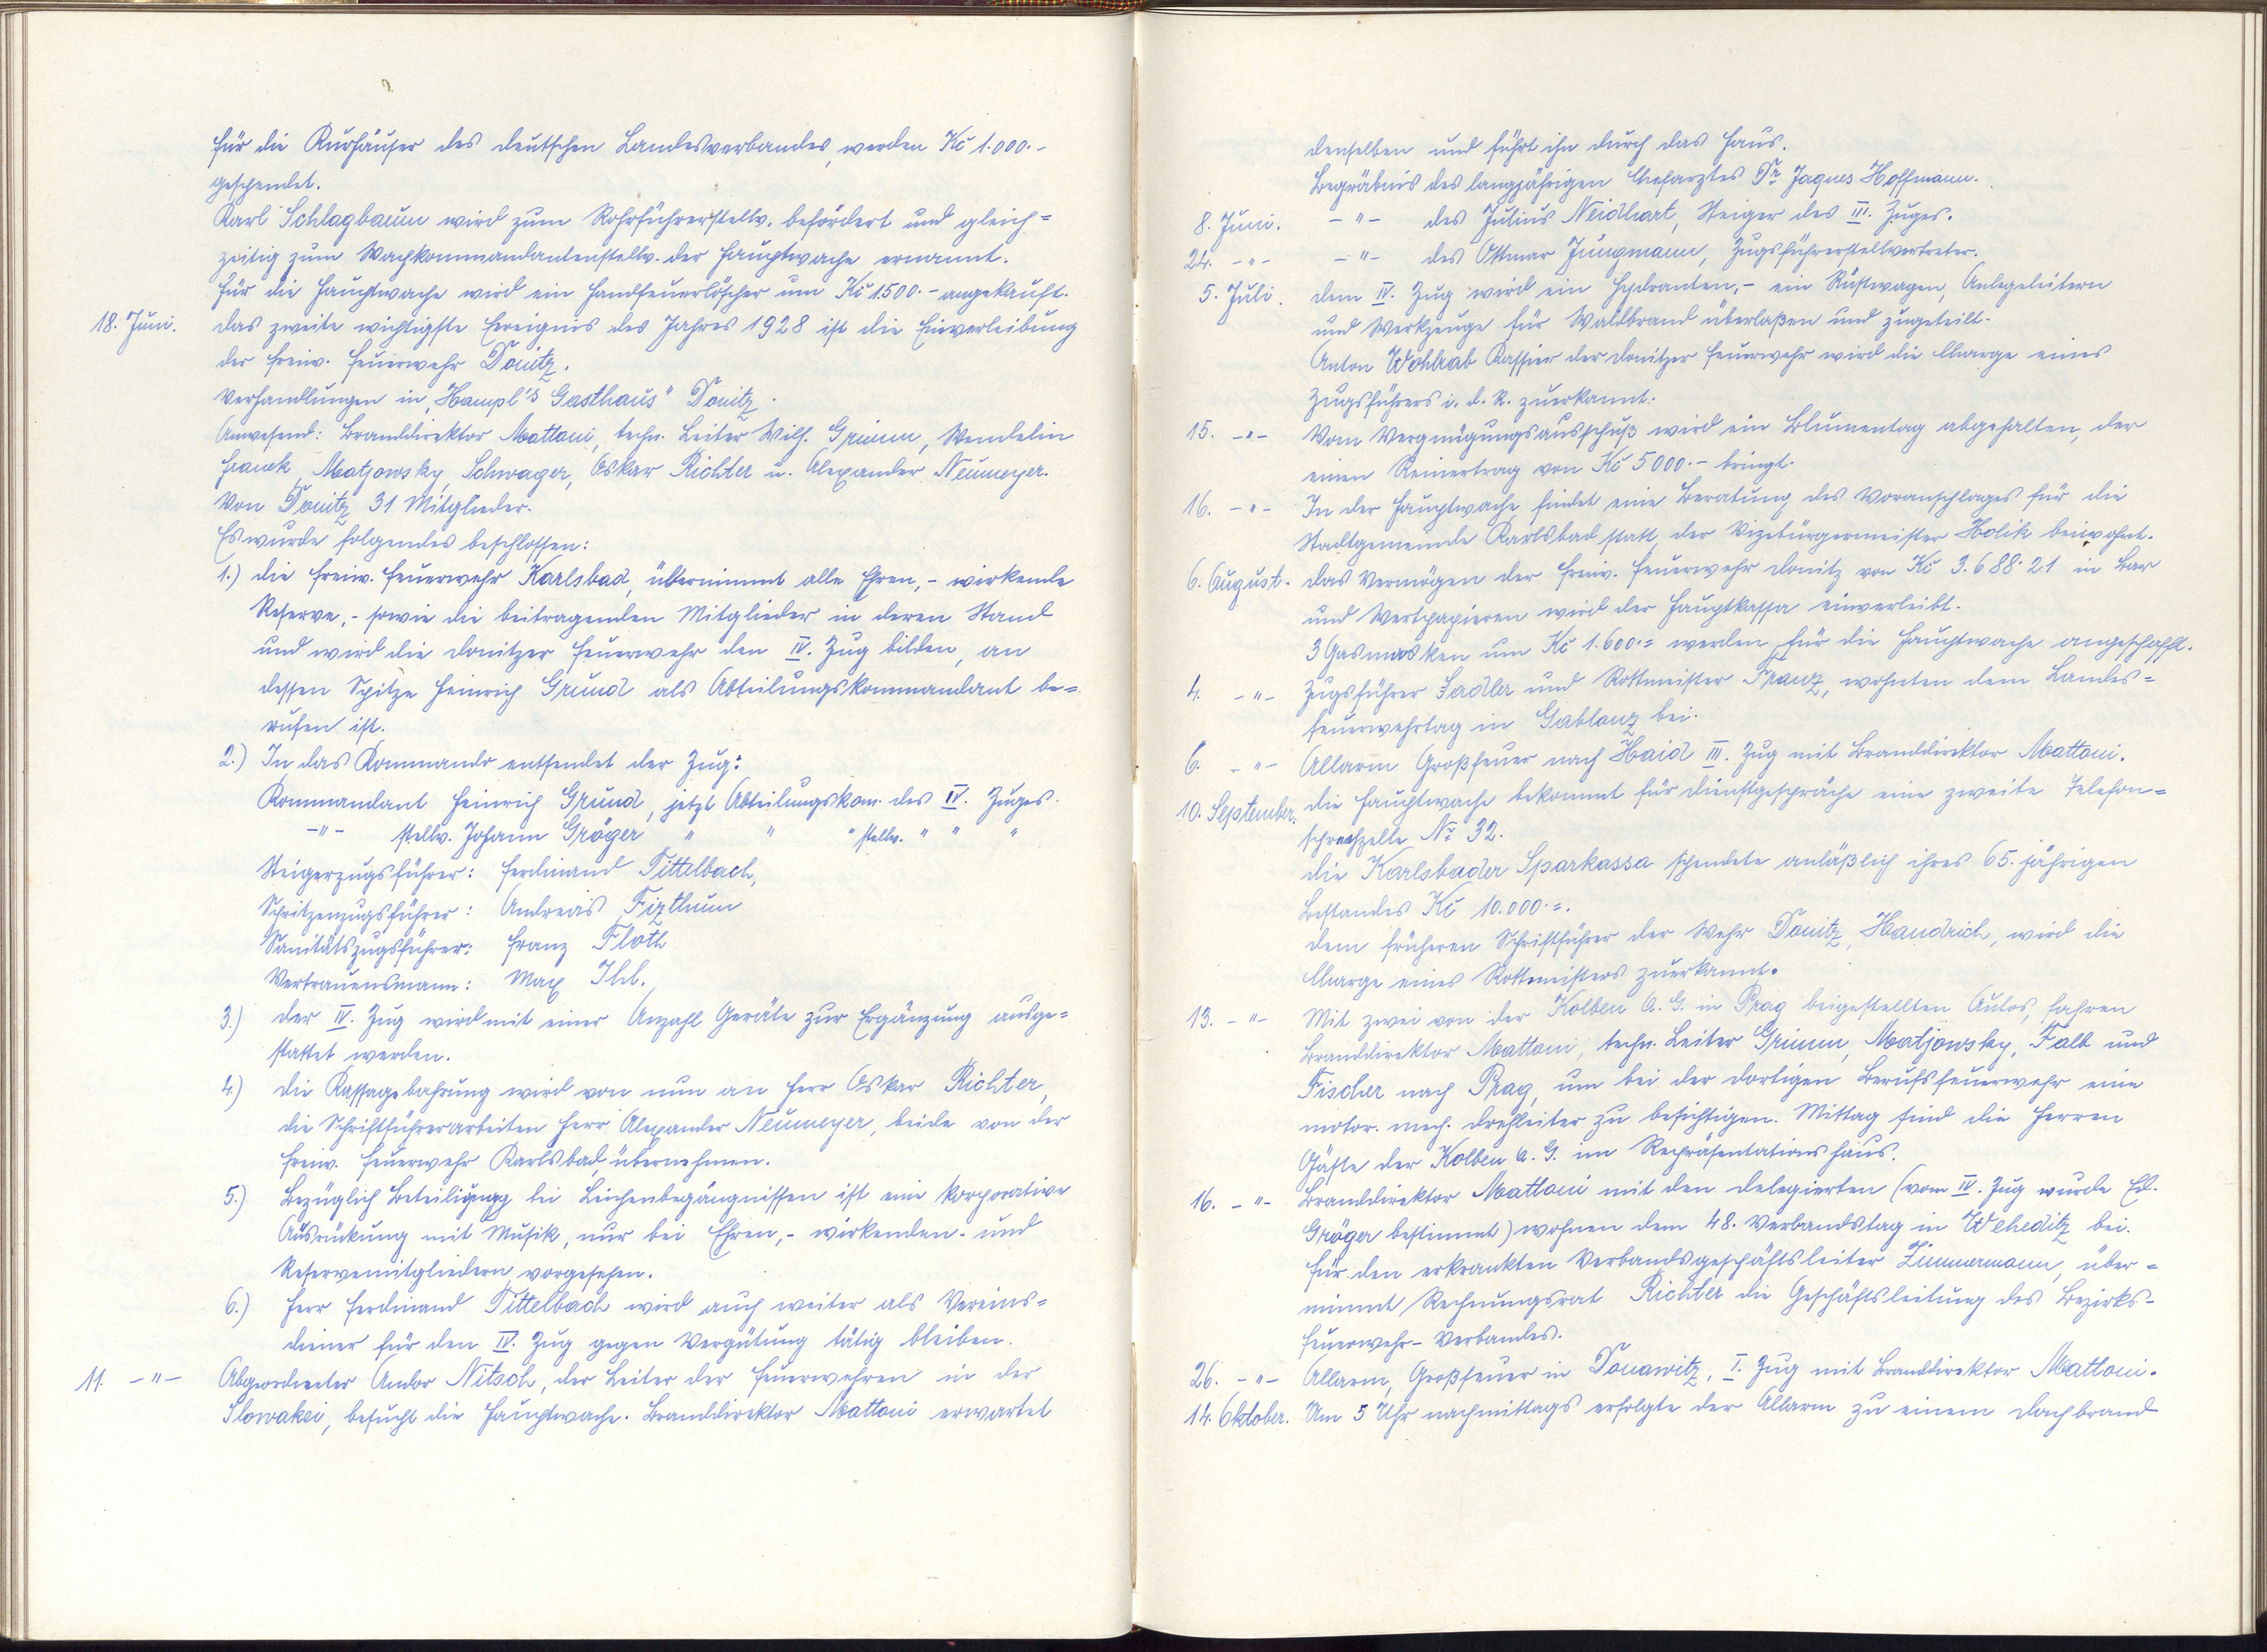 für die Kurhäuser des deutschen Landesverbandes, werden Kč 1.000.-
gespendet.
Karl Schlagbaum wird zum Rohrführerstellv. befördert und gleich=
zeitig zum Wachkommandantenstellv. der Hauptwache ernannt.
Für die Hauptwache wird ein Handfeuerlöscher um Kč 1.500.- angekauft.
18. Juni. Das zweite wichtigste Ereignis des Jahres 1928 ist die Einverleibung
der freiw. Feuerwehr Donitz.
Verhandlungen in „Hampl's Gasthaus" Donitz.
Anwesend: Branddirektor Mattoni, techn. Leiter Wilh. Grimm, Wendelin
Hanek, Matjowsky, Schwager, Oskar Richter u. Alexander Neumeyer.
Von Donitz 31 Mitglieder.
Es wurde folgendes beschlossen:
1.) Die freiw. Feuerwehr Karlsbad, übernimmt alle Ehren,- wirkende
Reserve,- sowie die beitragenden Mitglieder in deren Stand
und wird die Donitzer Feuerwehr den IV. Zug bilden, an
dessen Spitze Heinrich Grund als Abteilungskommandant be=
rufen ist.
2.) In das Kommando entsendet der Zug:
Kommandant Heinrich Grund, jetzt Abteilungskom. des IV. Zuges.
-"- stellv. Johann Gröger " " " stellv. " " "
Steigerzugsführer: Ferdinand Tittelbach,
Spritzenzugsführer: Andreas Fizthum
Sanitätszugsführer: Franz Floth
Vertrauensmann: Max Ihl.
3.) Der IV. Zug wird mit einer Anzahl Geräte zur Ergänzung ausge=
stattet werden.
4.) Die Kassagebahrung wird von nun an Herr Oskar Richter,
die Schriftführerarbeiten Herr Alexander Neumeyer, beide von der
freiw. Feuerwehr Karlsbad, übernehmen.
5.) Bezüglich Beteiligung bei Leichenbegängnissen ist eine korporative
Ausrückung mit Musik, nur bei Ehren,- wirkenden- und
Reservemitgliedern vorgesehen.
6.) Herr Ferdinand Tittelbach wird auch weiter als Vereins=
diener für den IV. Zug gegen Vergütung tätig bleiben.
11. -"- Abgeordneter Andor Nitsch, der Leiter der Feuerwehren in der
Slowakei, besucht die Hauptwache. Branddirektor Mattoni erwartet
denselben und führt ihn durch das Haus.
Begräbnis des langjährigen Chefarztes Dr. Jaques Hoffmann.
8. Juni. -"- des Julius Neidhart, Steiger des III. Zuges.
24. -"- -"- des Ottmar Jungmann, Zugsführerstellvertreter.
5. Juli. Dem IV. Zug wird ein Hydranten,- ein Rüstwagen, Anlegeleitern
und Werkzeuge für Waldbrand überlaßen und zugeteilt.
Anton Wohlrab Kassier der Donitzer Feuerwehr wird die Charge eines
Zugsführers i. d. R. zuerkannt.
15. -"- Vom Vergnügungsausschuß wird ein Blumentag abgehalten, der
einen Reinertrag von Kč 5000.- bringt.
16. -"- In der Hauptwache findet eine Beratung des Voranschlages für die
Stadtgemeinde Karlsbad statt, der Vizebürgermeister Holik beiwohnt.
6. August. Das Vermögen der freiw. Feuerwehr Donitz von Kč 3.688.21 in Bar
und Wertpapieren wird der Hauptkassa einverleibt.
3 Gasmasken um Kč 1.600.= werden für die Hauptwache angeschafft.
4. -"- Zugsführer Sadler und Rottmeister Franz, wohnten dem Landes=
feuerwehrtag in Gablonz bei.
6. -"- Allarm Großfeuer nach Haid III. Zug mit Branddirektor Mattoni.
10. September. Die Hauptwache bekommt für Dienstgespräche eine zweite Telefon=
sprechzelle Nr. 32.
Die Karlsbader Sparkassa spendete anläßlich ihres 65. jährigen
Bestandes Kč 10.000.=.
Dem früheren Schriftführer der Wehr Donitz, Handrich, wird die
Charge eines Rottmeisters zuerkannt.
13. -"- Mit zwei von der Kolben A. G. in Prag beigestellten Autos, fahren
Branddirektor Mattoni, techn. Leiter Grimm, Matjowsky, Falb und
Fischer nach Prag, um bei der dortigen Berufsfeuerwehr eine
motor. mech. Drehleiter zu besichtigen. Mittag sind die Herren
Gäste der Kolben A. G. im Repräsentationshaus.
16. -"- Branddirektor Mattoni mit den Delegierten (vom IV. Zug wurde Ed.
Gröger bestimmt) wohnen dem 48. Verbandstag in Weheditz bei.
Für den erkrankten Verbandsgeschäftsleiter Zimmermann, über=
nimmt Rechnungsrat Richter die Geschäftsleitung des Bezirks-
feuerwehr-Verbandes.
26. -"- Allarm, Großfeuer in Donawitz, I. Zug mit Branddirektor Mattoni.
14. Oktober. Um 5 Uhr nachmittags erfolgte der Allarm zu einem Dachbrand